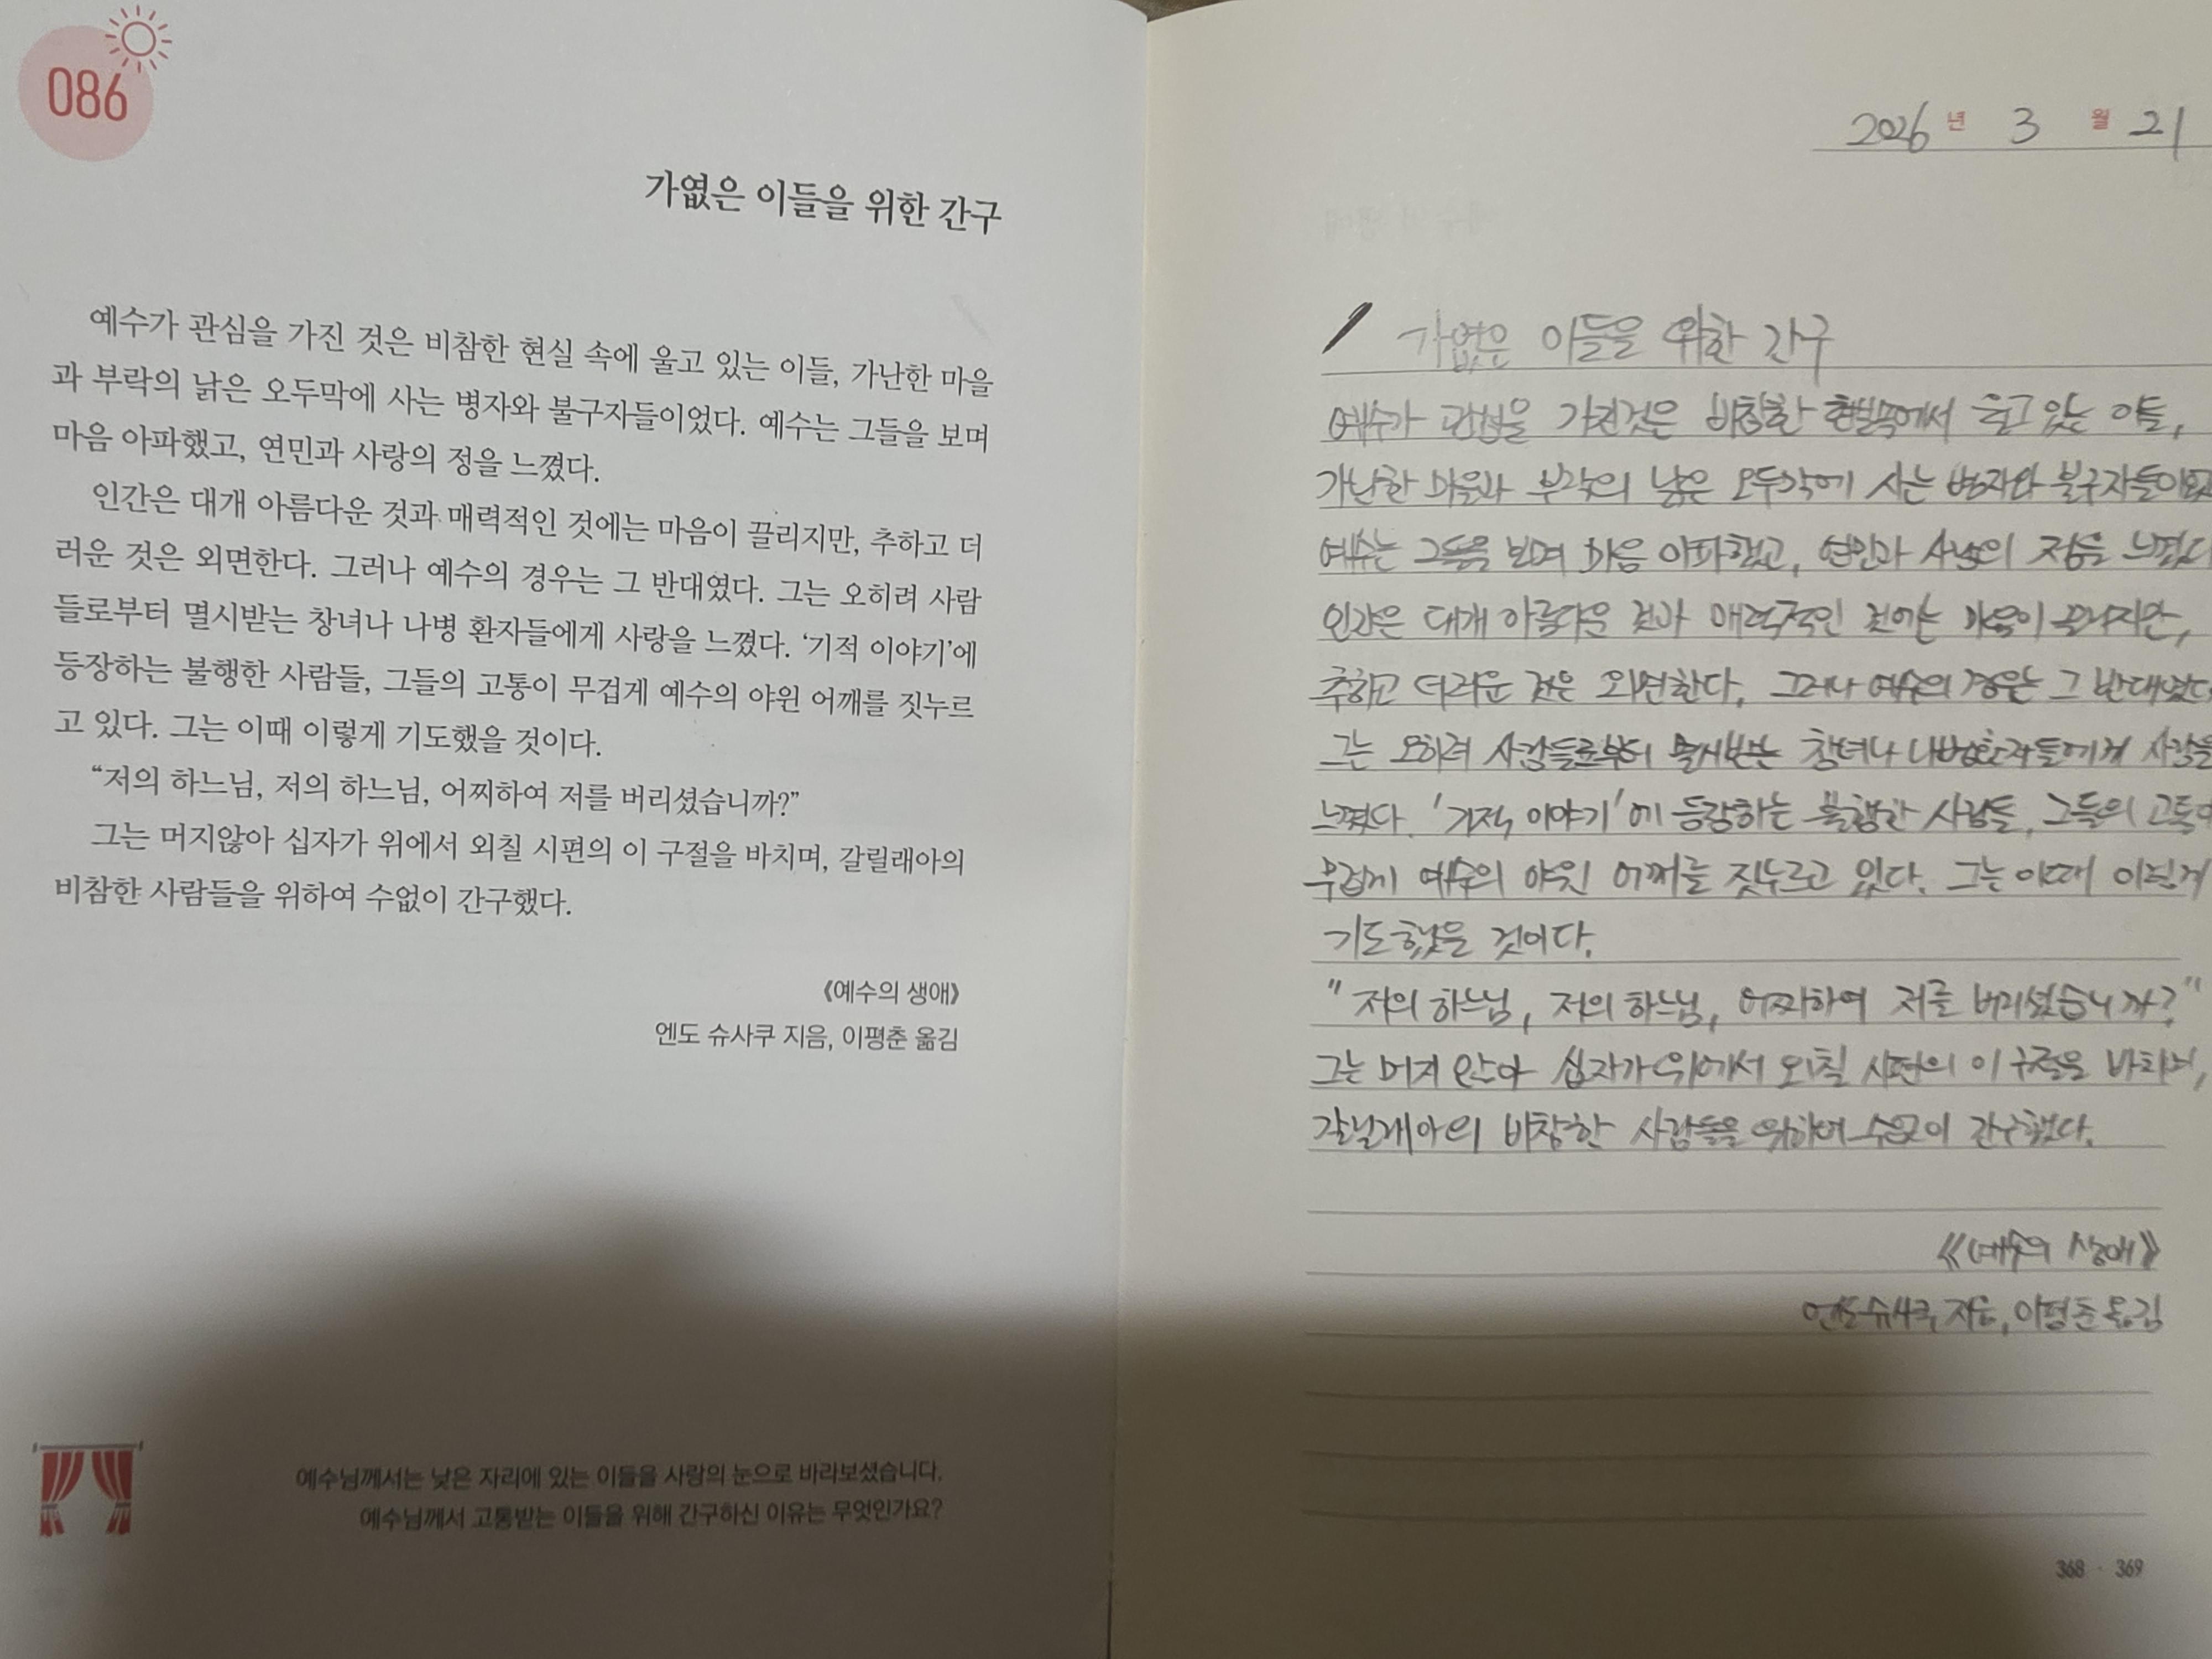 086
가엾은 이들을 위한 간구
예수가 관심을 가진 것은 비참한 현실 속에 울고 있는 이들, 가난한 마을
과 부락의 낡은 오두막에 사는 병자와 불구자들이었다. 예수는 그들을 보며
마음 아파했고, 연민과 사랑의 정을 느꼈다.
인간은 대개 아름다운 것과 매력적인 것에는 마음이 끌리지만, 추하고 더
러운 것은 외면한다. 그러나 예수의 경우는 그 반대였다. 그는 오히려 사람
들로부터 멸시받는 창녀나 나병 환자들에게 사랑을 느꼈다. ‘기적 이야기’에
등장하는 불행한 사람들, 그들의 고통이 무겁게 예수의 야윈 어깨를 짓누르
고 있다. 그는 이때 이렇게 기도했을 것이다.
“저의 하느님, 저의 하느님, 어찌하여 저를 버리셨습니까?”
그는 머지않아 십자가 위에서 외칠 시편의 이 구절을 바치며, 갈릴래아의
비참한 사람들을 위하여 수없이 간구했다.
《예수의 생애》
엔도 슈사쿠 지음, 이평춘 옮김
예수님께서는 낮은 자리에 있는 이들을 사랑의 눈으로 바라보셨습니다.
예수님께서 고통받는 이들을 위해 간구하신 이유는 무엇인가요?
2026 년 3 월 21
가엾은 이들을 위한 간구
예수가 관심을 가진것은 비참한 현실속에서 울고 있는 이들,
가난한 마을과 부락의 낡은 오두막에 사는 병자와 불구자들이었
예수는 그들을 보며 마음 아파했고, 연민과 사랑의 정을 느꼈다
인간은 대개 아름다운 것과 매력적인 것에는 마음이 끌리지만,
추하고 더러운 것은 외면한다. 그러나 예수의 경우는 그 반대였다
그는 오히려 사람들로부터 멸시받는 창녀나 나병환자들에게 사랑을
느꼈다. '기적 이야기'에 등장하는 불행한 사람들, 그들의 고통이
무겁게 예수의 야윈 어깨를 짓누르고 있다. 그는 이때 이렇게
기도했을 것이다.
"저의 하느님, 저의 하느님, 어찌하여 저를 버리셨습니까?"
그는 머지 않아 십자가 위에서 외칠 시편의 이 구절을 바치며,
갈릴래아의 비참한 사람들을 위하여 수없이 간구했다.
《예수의 생애》
엔도 슈사쿠 지음, 이평춘 옮김
368 · 369